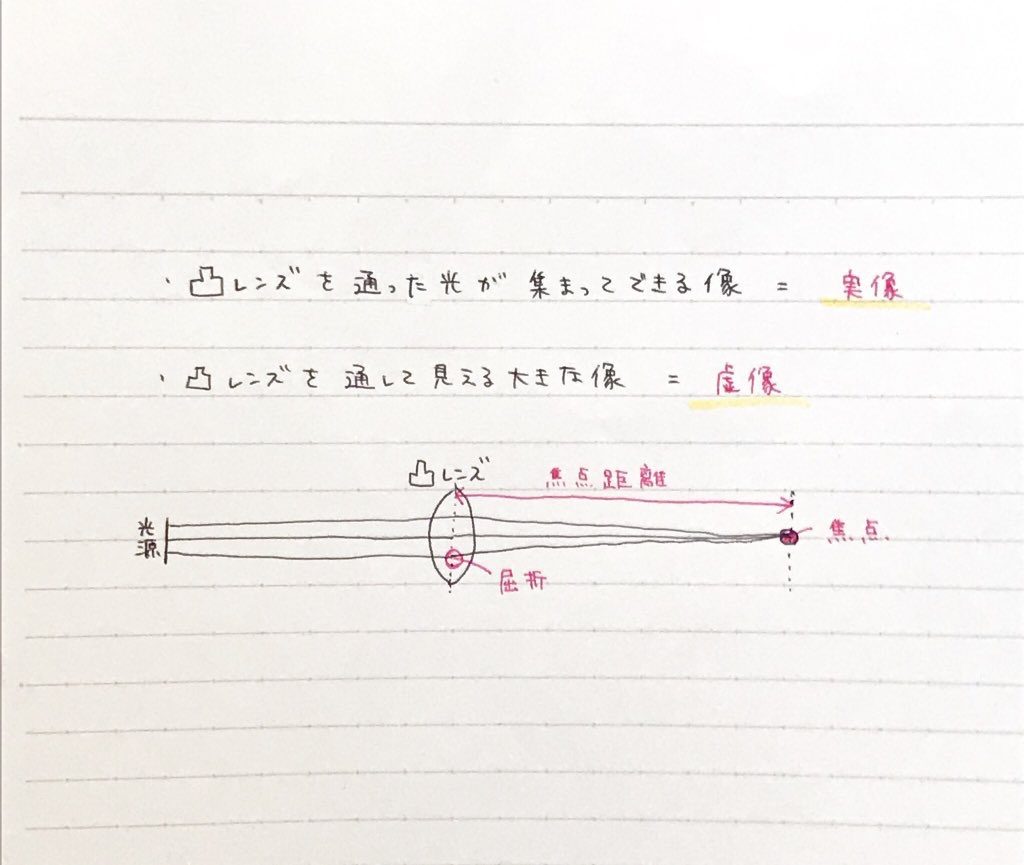 ・凸レンズを通った光が集まってできる像 = 実像
・凸レンズを通して見える大きな像 = 虚像
凸レンズ
焦点距離
光源
焦点
屈折